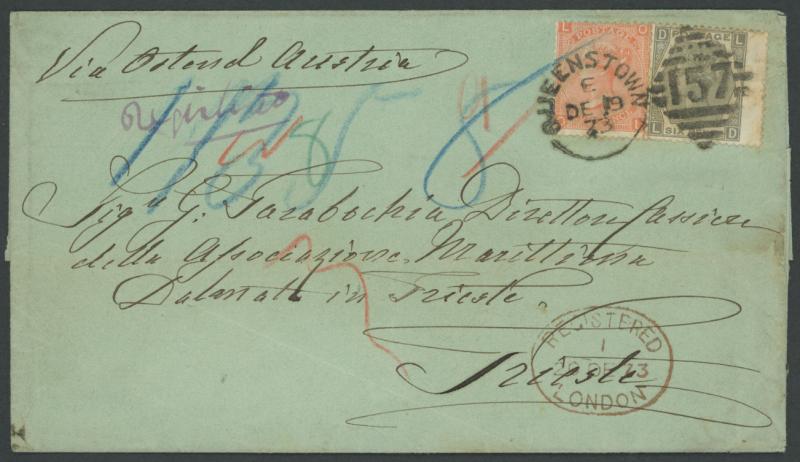 Via Ostend Austria
L O
POSTAGE
D L
POSTAGE
L SIX D
QUEENSTOWN
E
DE 19
73
157
Sigr G. Tarabochia, Direttor Cassiere
della Associazione Marittima
in Trieste
Trieste
REGISTERED
1
20 DE 73
LONDON